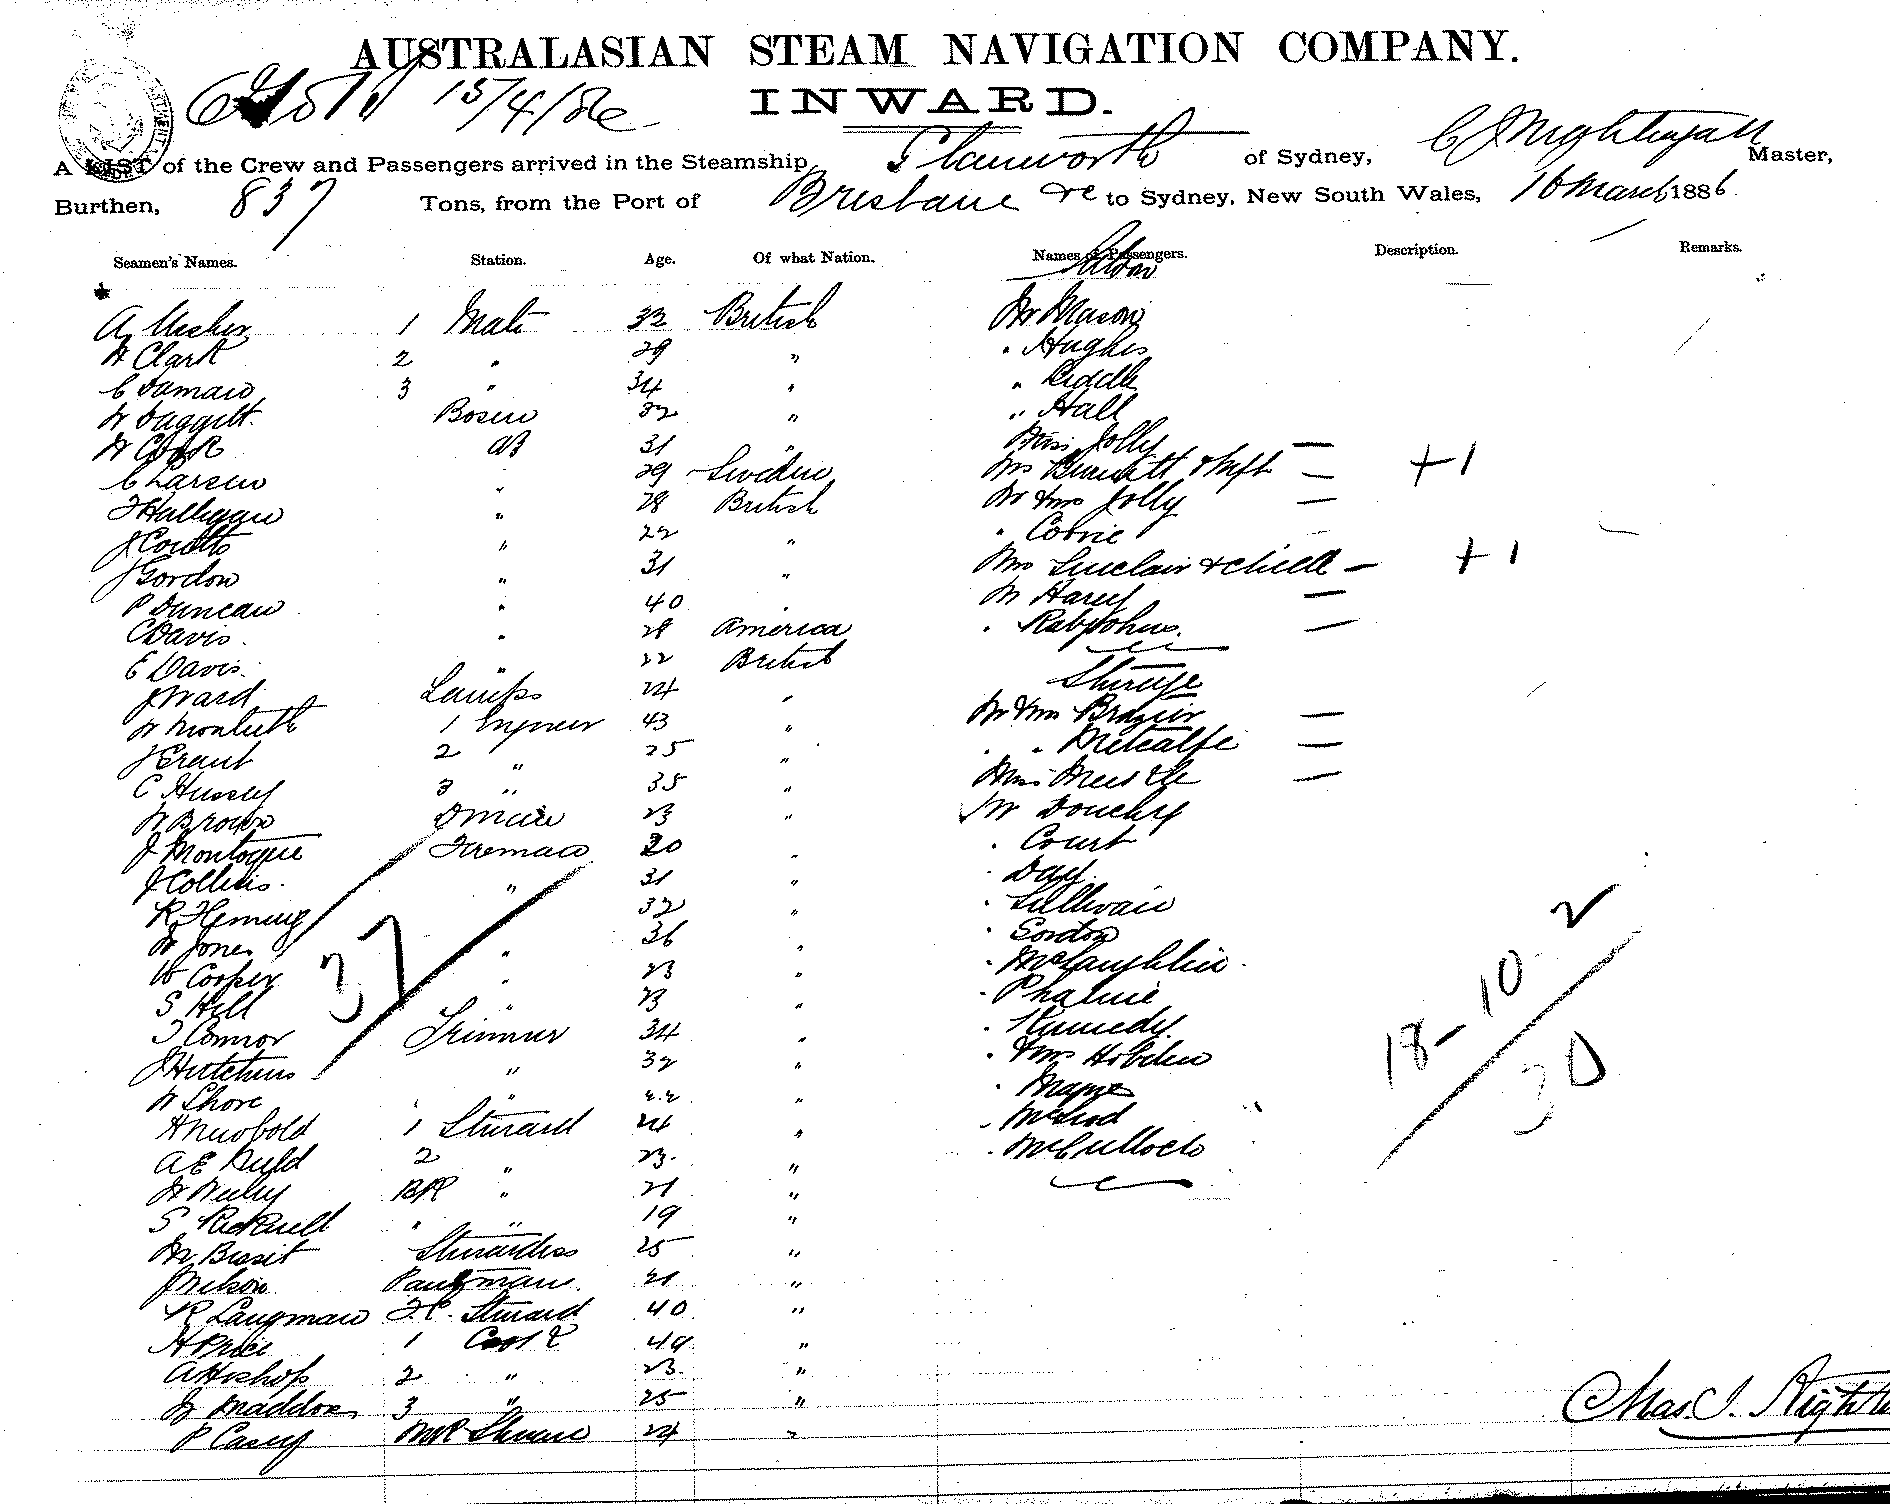 AUSTRALASIAN STEAM NAVIGATION COMPANY.
15/4/86
INWARD.
A LIST of the Crew and Passengers arrived in the Steamship of Sydney, C J Nightingall Master,
Burthen, 837 Tons, from the Port of Brisbane &c to Sydney, New South Wales, 16 March 1886.
Seamen's Names. Station. Age. Of what Nation. Names of Passengers. Description. Remarks.
Saloon
1 Mate 33 British Mr Mason
H Clark 2 " 29 " " Hughes
3 " 34 " " Riddle
W Daggett Bosun 32 " " Hall
W Cook AB 31 " Miss Jolly —
C Larsen " 29 Sweden Mrs & Inft — +1
J Halligan " 28 British Mr & Mrs Jolly —
J Coutts " 22 " "
J Gordon " 31 " Mrs Sinclair & child — +1
P Duncan " 40 " Mr —
C Davis " 28 America " Rabjohns —
E Davis " 22 British
J Ward Lamps 24 " Steerage
W Monteith 1 Engineer 43 " Mr & Mrs Brazier —
J Grant 2 " 25 " " " Metcalfe —
C Hussey 3 " 35 " Miss —
W Brown 23 " Mr
J Montague Fireman 30 " " Court
J Collins " 31 " " Day
R Fleming 32 " " Sullivan
W Jones " 36 " " Gordon
W Cooper " 23 " " McLaughlin
S Hill " 23 "
T Connor Trimmer 34 " " Kennedy
J Hutchins " 32 " " & Mrs Hobden
W Shore " 22 "
H Newbold 1 Steward 24 " " McLeod
A E Auld 2 " 23 " " McCulloch
BR " 21 "
S Ricknell " " 19 "
Stewardess 25 "
J Nelson Pantryman 21 "
R Langman F.C. Steward 40 "
H Price 1 Cook 49 "
A Hishop 2 " 23 "
W Maddox 3 " 25 "
P Casey 24 "
37
18-10-2
30
Chas. J. Night